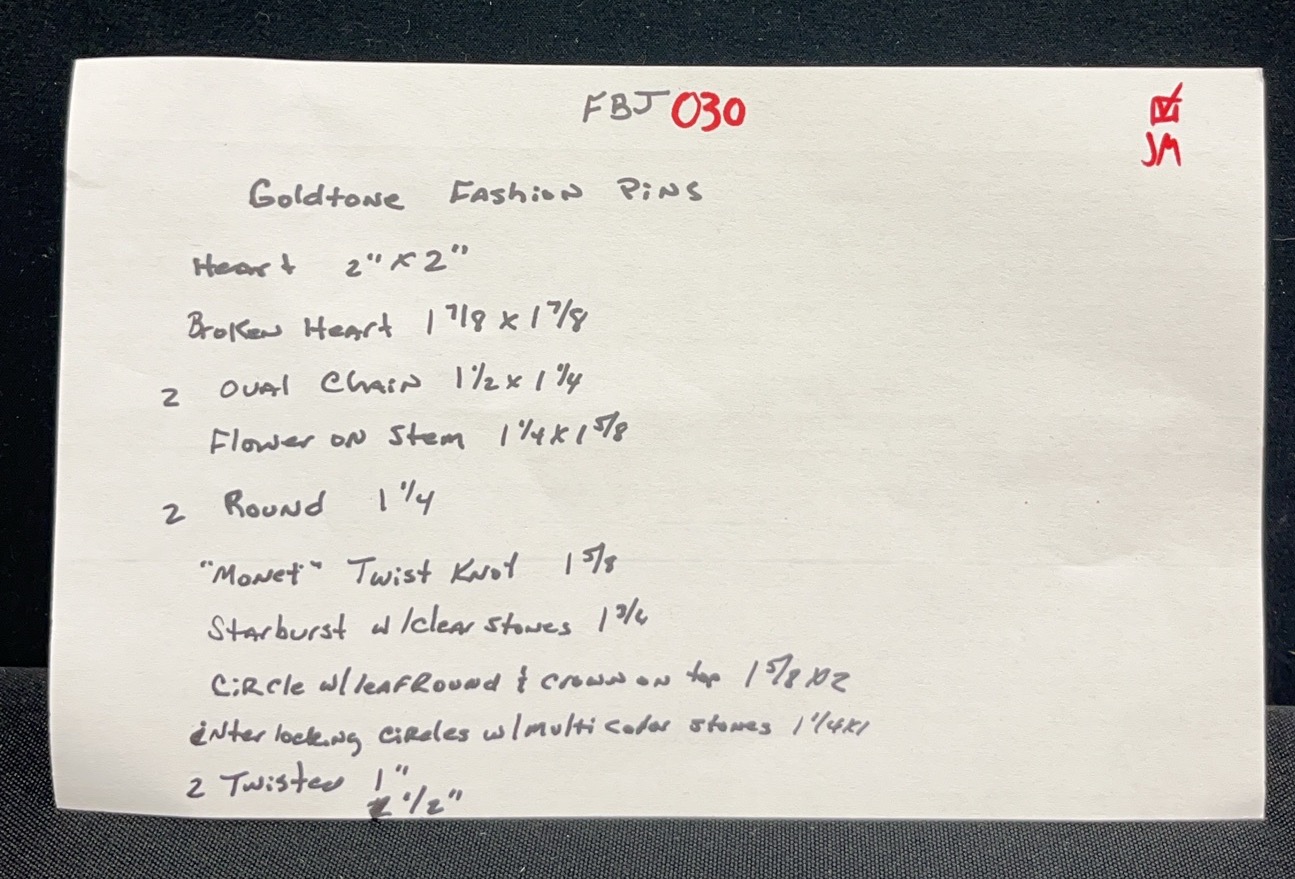 FBJ 030
JM
Goldtone Fashion Pins
Heart 2" x 2"
Broken Heart 1 7/8 x 1 7/8
2 Oval Chain 1 1/2 x 1 1/4
Flower on Stem 1 1/4 x 1 5/8
2 Round 1 1/4
"Monet" Twist Knot 1 5/8
Starburst w/clear stones 1 3/4
Circle w/leaf Round & crown on top 1 5/8 x 2
interlocking circles w/multi color stones 1 1/4 x 1
2 Twisted 1"
1/2"